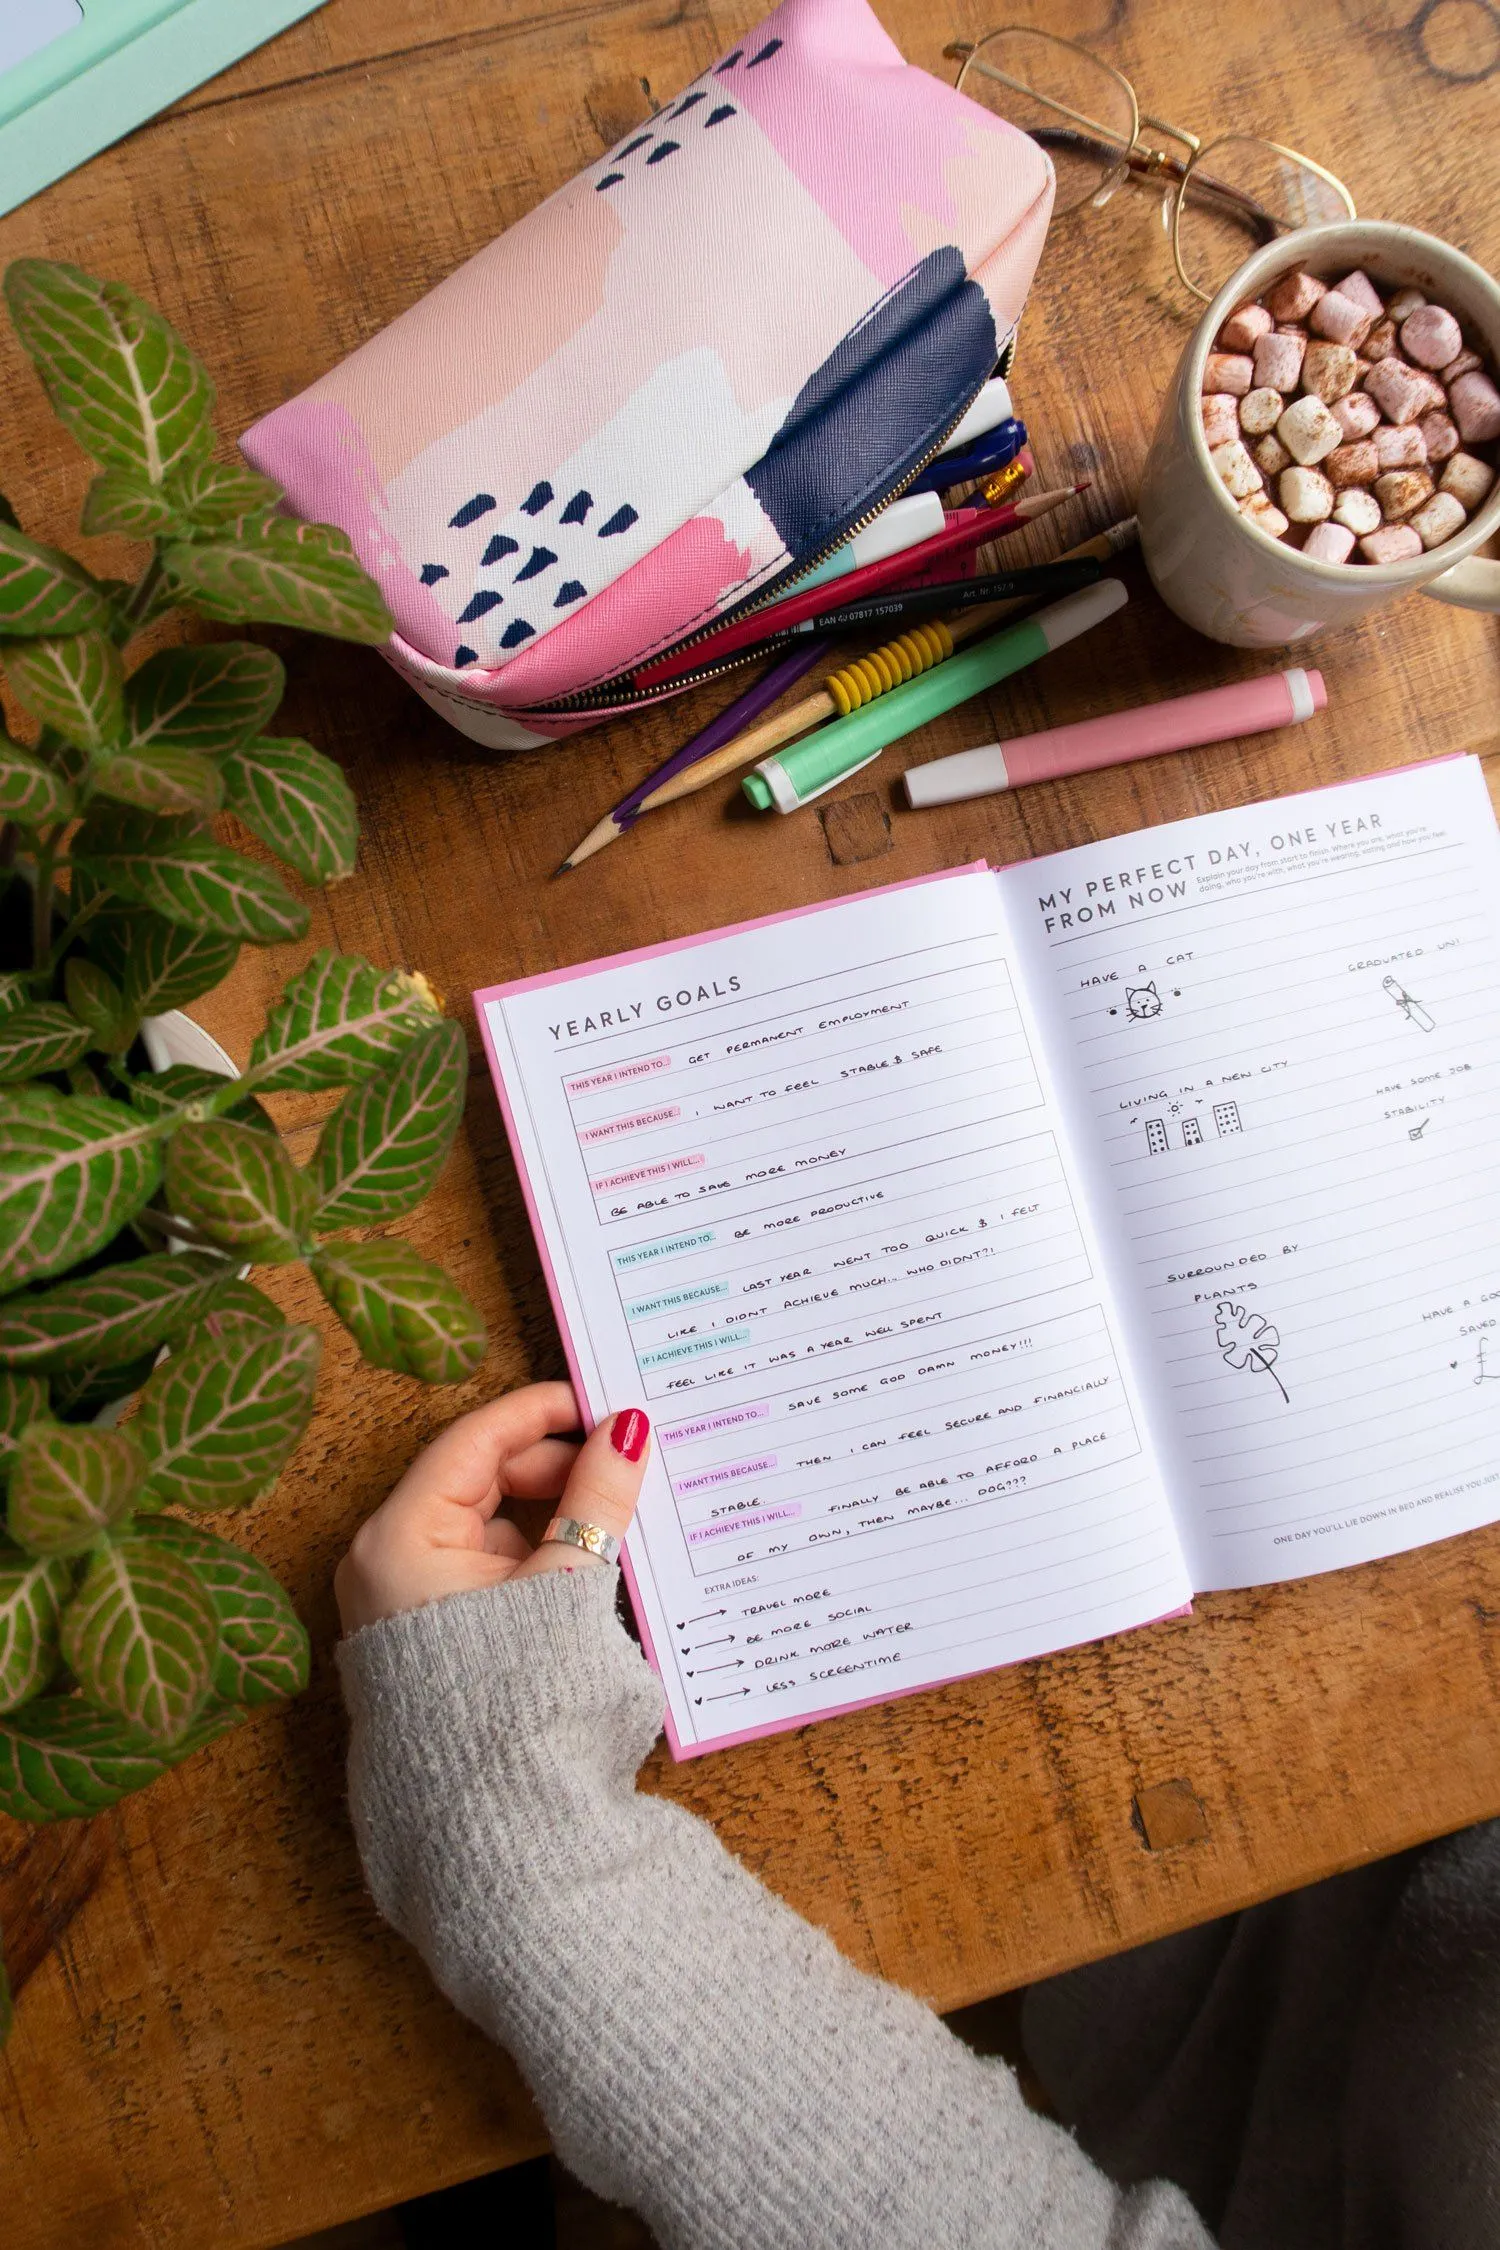 EAN 40 07817 157039
Art. Nr. 157-9
YEARLY GOALS
THIS YEAR I INTEND TO... GET PERMANENT EMPLOYMENT
I WANT THIS BECAUSE... I WANT TO FEEL STABLE & SAFE
IF I ACHIEVE THIS I WILL...
BE ABLE TO SAVE MORE MONEY
THIS YEAR I INTEND TO... BE MORE PRODUCTIVE
I WANT THIS BECAUSE... LAST YEAR WENT TOO QUICK & I FELT
LIKE I DIDNT ACHIEVE MUCH... WHO DIDNT?!
IF I ACHIEVE THIS I WILL...
FEEL LIKE IT WAS A YEAR WELL SPENT
THIS YEAR I INTEND TO... SAVE SOME GOD DAMN MONEY!!!
I WANT THIS BECAUSE... THEN I CAN FEEL SECURE AND FINANCIALLY
STABLE.
IF I ACHIEVE THIS I WILL... FINALLY BE ABLE TO AFFORD A PLACE
OF MY OWN, THEN MAYBE... DOG???
EXTRA IDEAS:
TRAVEL MORE
BE MORE SOCIAL
DRINK MORE WATER
LESS SCREENTIME
MY PERFECT DAY, ONE YEAR
FROM NOW
Explain your day from start to finish. Where you are, what you're
doing, who you're with, what you're wearing, eating and how you feel.
HAVE A CAT
GRADUATED UNI
LIVING IN A NEW CITY
HAVE SOME JOB
STABILITY
SURROUNDED BY
PLANTS
HAVE A
SAVED
£
ONE DAY YOU'LL LIE DOWN IN BED AND REALISE YOU JUST